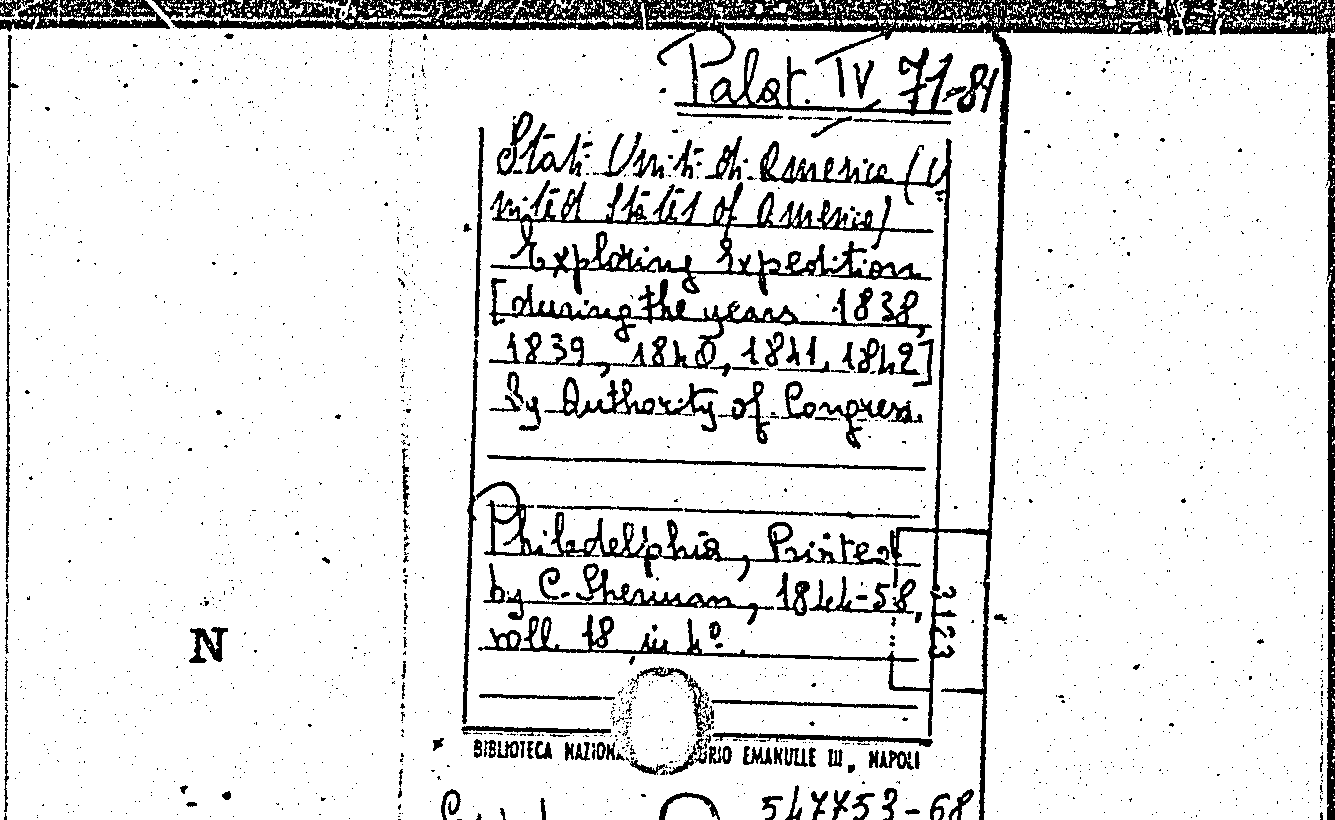 Palat. IV 71-81
Stati Uniti di America (U
nited States of America)
Exploring Expedition
[during the years 1838,
1839, 1840, 1841, 1842]
By Authority of Congress.
Philadelphia, Printed
by C. Sherman, 1844-58,
voll. 18 in 4º.
3123
N
BIBLIOTECA NAZION URIO EMANUELE III, NAPOLI
547753-68